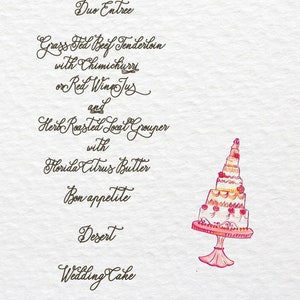 Duo Entree
Grass Fed Beef Tenderloin
with Chimichurry
or Red Wine Jus
and
Herb Roasted Local Grouper
with
Florida Citrus Butter
Bon appetite
Desert
Wedding Cake